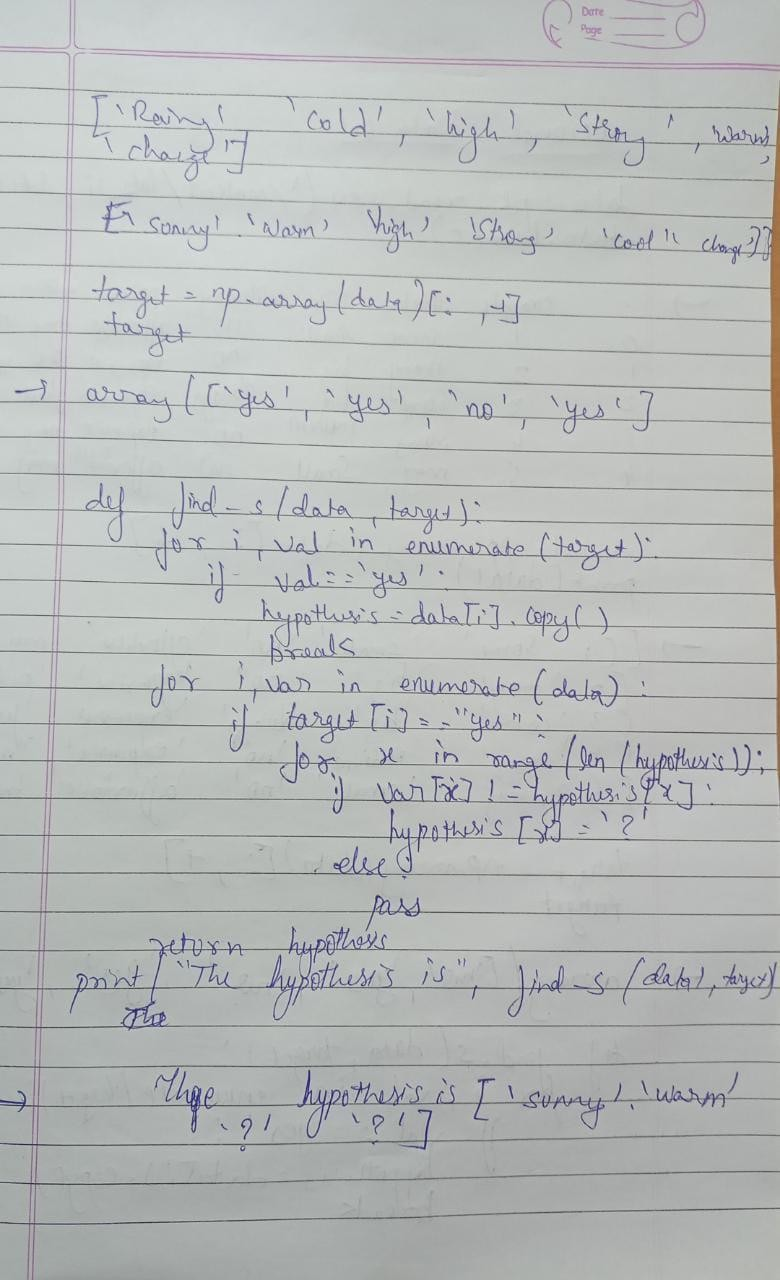 Date
Page
['Rainy' 'cold', 'high', 'Strong', 'warm',
'change']
['sunny' 'warm' 'high' 'Strong' 'cool' 'change']]
target = np.array(data)[:,-1]
target
→ array(['yes', 'yes', 'no', 'yes']
def find-s(data, target):
for i, val in enumerate(target):
if val=='yes':
hypothesis = data[i].copy()
break
for i, var in enumerate(data):
if target[i]=="yes":
for x in range(len(hypothesis)):
if var[x] != hypothesis[x]:
hypothesis[x] = '?'
else:
pass
return hypothesis
print("The hypothesis is", find-s(data1, target)
The
→ hypothesis is ['sunny'.'warm'
'?' '?']